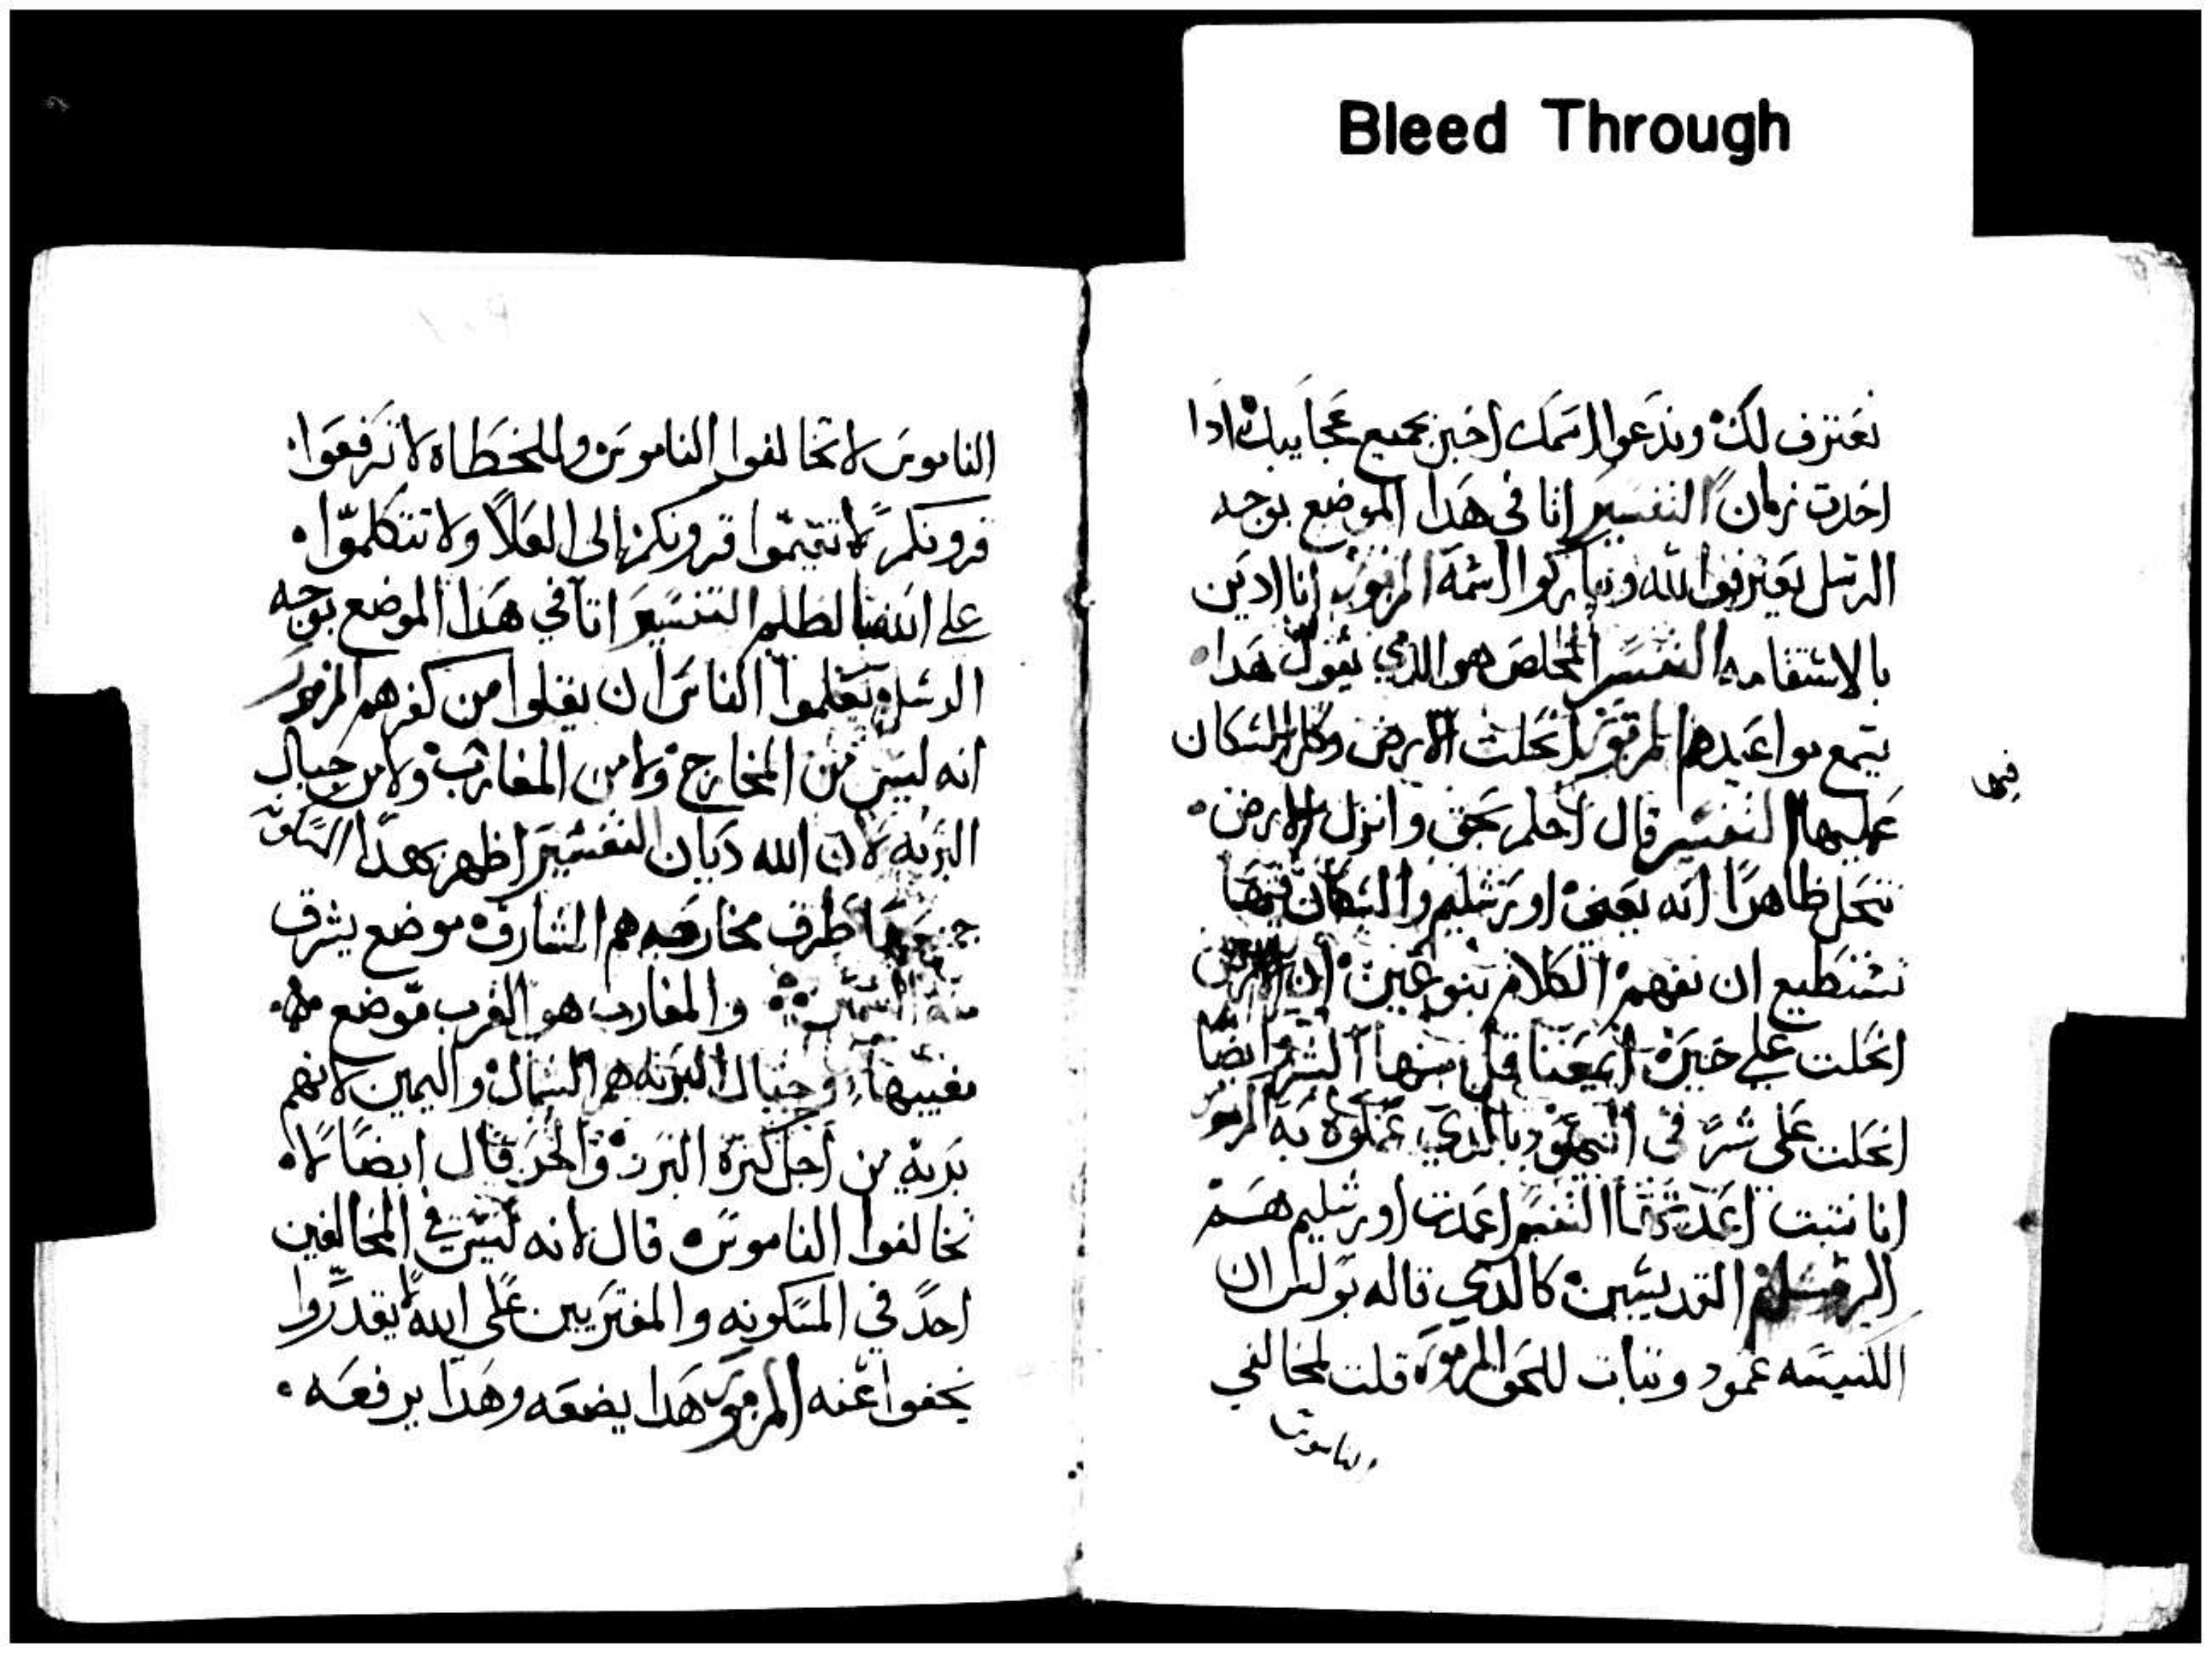 Bleed Through
نعترف لك وندعوا اسمك اخبر بجميع عجايبك اذا
اخدت زمان التفسير انا في هدا الموضع بوجه
الرسل يعترفوا لله ويباركوا اسمه المزمور انا ادين
بالاستقامه التفسير المخلص هو الذي يقول هدا
يتمع مواعيدهم المزمور انحلت الارض وكل السكان
عليها التفسير قال احكم بحق وانزل الارض
تنحل ظاهرا انه يعني اورشليم والسكان فيها
فيها
نستطيع ان نفهم الكلام بنوعين ان الارض
انحلت على خيره قل منها الشر وايضا
انحلت على شر في اليهود بالذي عملوه به المزمور
انا ثبتت اعمدتها التفسير اعمدت اورشليم هم
الرسل القديسين كالدي قاله بولس ان
الكنيسه عمود وثبات للحق المزمور قلت لمخالفي
الناموس
الناموس لا تخالفوا الناموس وللخطاه لا ترفعوا
قرونكم لا تقيموا قرونكم الى العلا ولا تتكلموا
على الله بالظلم التفسير انا في هدا الموضع بوجه
الرسل يعلموا الناس ان يقلوا من كفرهم المزمور
انه ليس من المخارج ولا من المغارب ولا من جبال
البريه لان الله ديان التفسير اظهر بهدا المسكونه
جميعها طرف مخارجه هم المشارق موضع يشرق
منه الشمس والمغارب هو الغرب موضع
مغيبها وجبال البريه هم الشمال واليمين لانهم
بريه من اجل كترة البرد والحر قال ايضا لا
تخالفوا الناموس قال لانه ليس في المخالفين
احد في المسكونه والمفتريين على الله لا يقدروا
يخفوا عنه المزمور هدا يضعه وهدا يرفعه